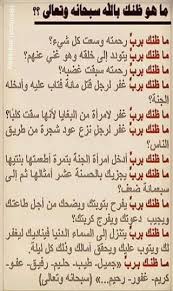 ما هو ظنك بالله سبحانه وتعالى ؟؟
ما ظنك برب رحمته وسعت كل شيء؟
ما ظنك برب يتودد إلى خلقه وهو غني عنهم؟
ما ظنك برب رحمته سبقت غضبه؟
ما ظنك برب غفر لرجل قتل مائة قتاب عليه وأدخله
الجنة؟
ما ظنك برب غفر لامرأة من البغايا لأنها سقت كلبا؟
ما ظنك برب غفر لرجل نزع عود شجرة من طريق
الناس؟
ما ظنك برب أدخل امرأة الجنة بتمرة أطعمتها بنتيها
ما ظنك برب يجزيك بالحسنة عشر أمثالها ثم إلى
سبعمائة ضعف؟
ما ظنك برب يفرح بتوبتك ويضحك من أجل طاعتك
ويجيب دعوتك ويفرج كربتك؟
ما ظنك برب يتنزل إلى السماء الدنيا فيناديك ليغفر
لك ويتوب عليك ويحقق آمالك وذلك كل ليلة
ما ظنك برب «جميل- طيب- حليم- رفيق- عفو-
كريم- غفور- رحيم...» (سبحانه وتعالى)